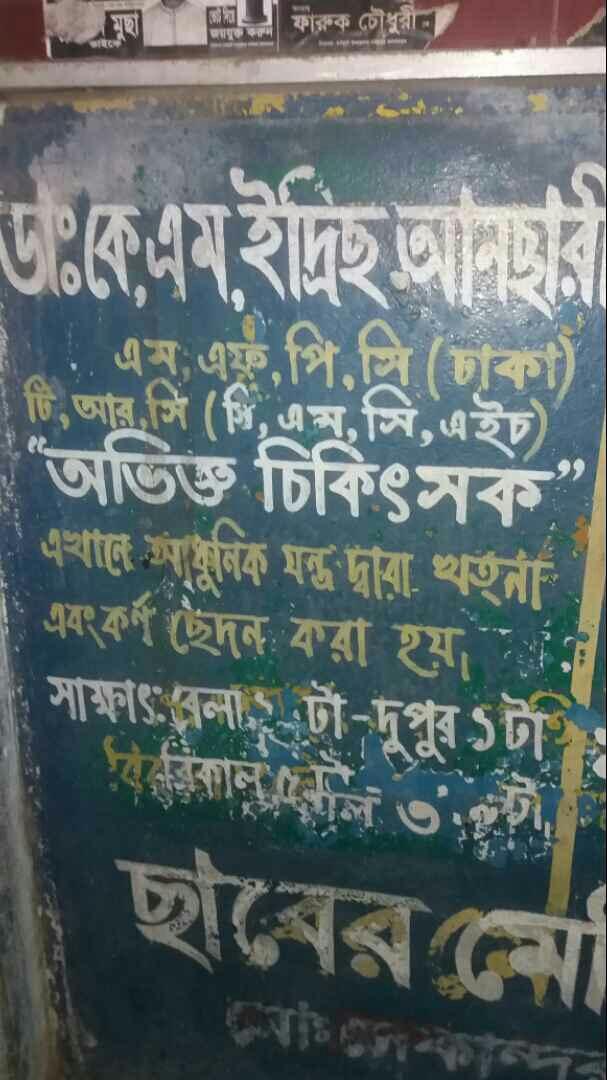 মুছা
ভাইকে
ভোট দিয়ে
জয়যুক্ত করুন
ফারুক চৌধুরী
ডাঃ কে, এম, ইদ্রিছ আনছারী
এম, এফ, পি, সি (ঢাকা)
টি, আর, সি (সি, এম, সি, এইচ)
“অভিজ্ঞ চিকিৎসক”
এখানে আধুনিক যন্ত্র দ্বারা খৎনা
এবং কর্ণ ছেদন করা হয়।
সাক্ষাৎ: বেলা টা - দুপুর ১ টা
ছাবের মে
মোঃ সেকান্দর